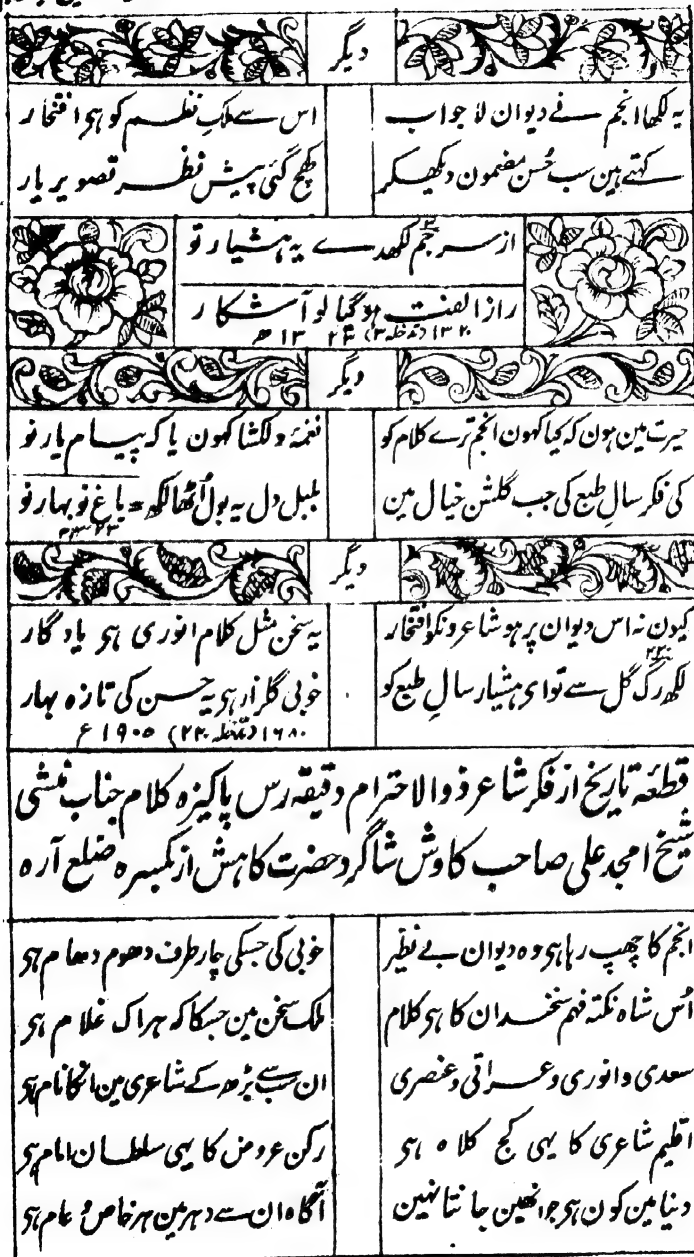 دیگر
یہ لکھا انجم نے دیوان لا جواب اس سے ملکِ نظم کو ہی افتخار
کہتے ہین سب حُسنِ مضمون دیکھکر کھچ گئی پیشِ نظر تصویر یار
از سرِ جم لکھدے یہ ہشیار تو
۳
راز الفت ہو گیا لو آشکار
۱۳۲۰ (تدخلہ ۳) ۱۳۲۳ ھ
دیگر
حیرت مین ہون کہ کیا کہون انجم ترے کلام کو نغمۂ دلکشا کہون یا کہ پیام یار نو
کی فکر سالِ طبع کی جب گلشن خیال مین بلبل دل یہ بول اُٹھا لکھ باغ نو بہار نو
دیگر
کیون نہ اس دیوان پر ہو شاعرونکو افتخار یہ سخن مثل کلام انوری ہی یادگار
لکھ رگ گل سے تو ای ہشیار سالِ طبع کو خوبی گلزار ہی یہ حسن کی تازہ بہار
۲۲۰
۱۶۸۰ (تدخلہ ۲۲۰) ۱۹۰۵ ء
قطعۂ تاریخ از فکر شاعر ذوالاحترام دقیقہ رس پاکیزہ کلام جناب منشی
شیخ امجد علی صاحب کاوش شاگرد حضرت کاہش از ضلع آرہ
انجم کا چھپ رہا ہی وہ دیوان بے نظیر خوبی کی جسکی چار طرف دھوم دھام ہی
اُس شاہ نکتہ فہم سخندان کا ہی کلام ملک سخن مین جسکا کہ ہر اک غلام ہی
سعدی و انوری و عراقی و عنصری ان سب سے بڑھ کے شاعری مین انکا نام ہی
اقلیم شاعری کا یہی کج کلاہ ہی رکن عروض کا یہی سلطان امام ہی
دنیا مین کون ہی جو انھین جانتا نہین آگاہ ان سے دہر مین ہر خاص و عام ہی